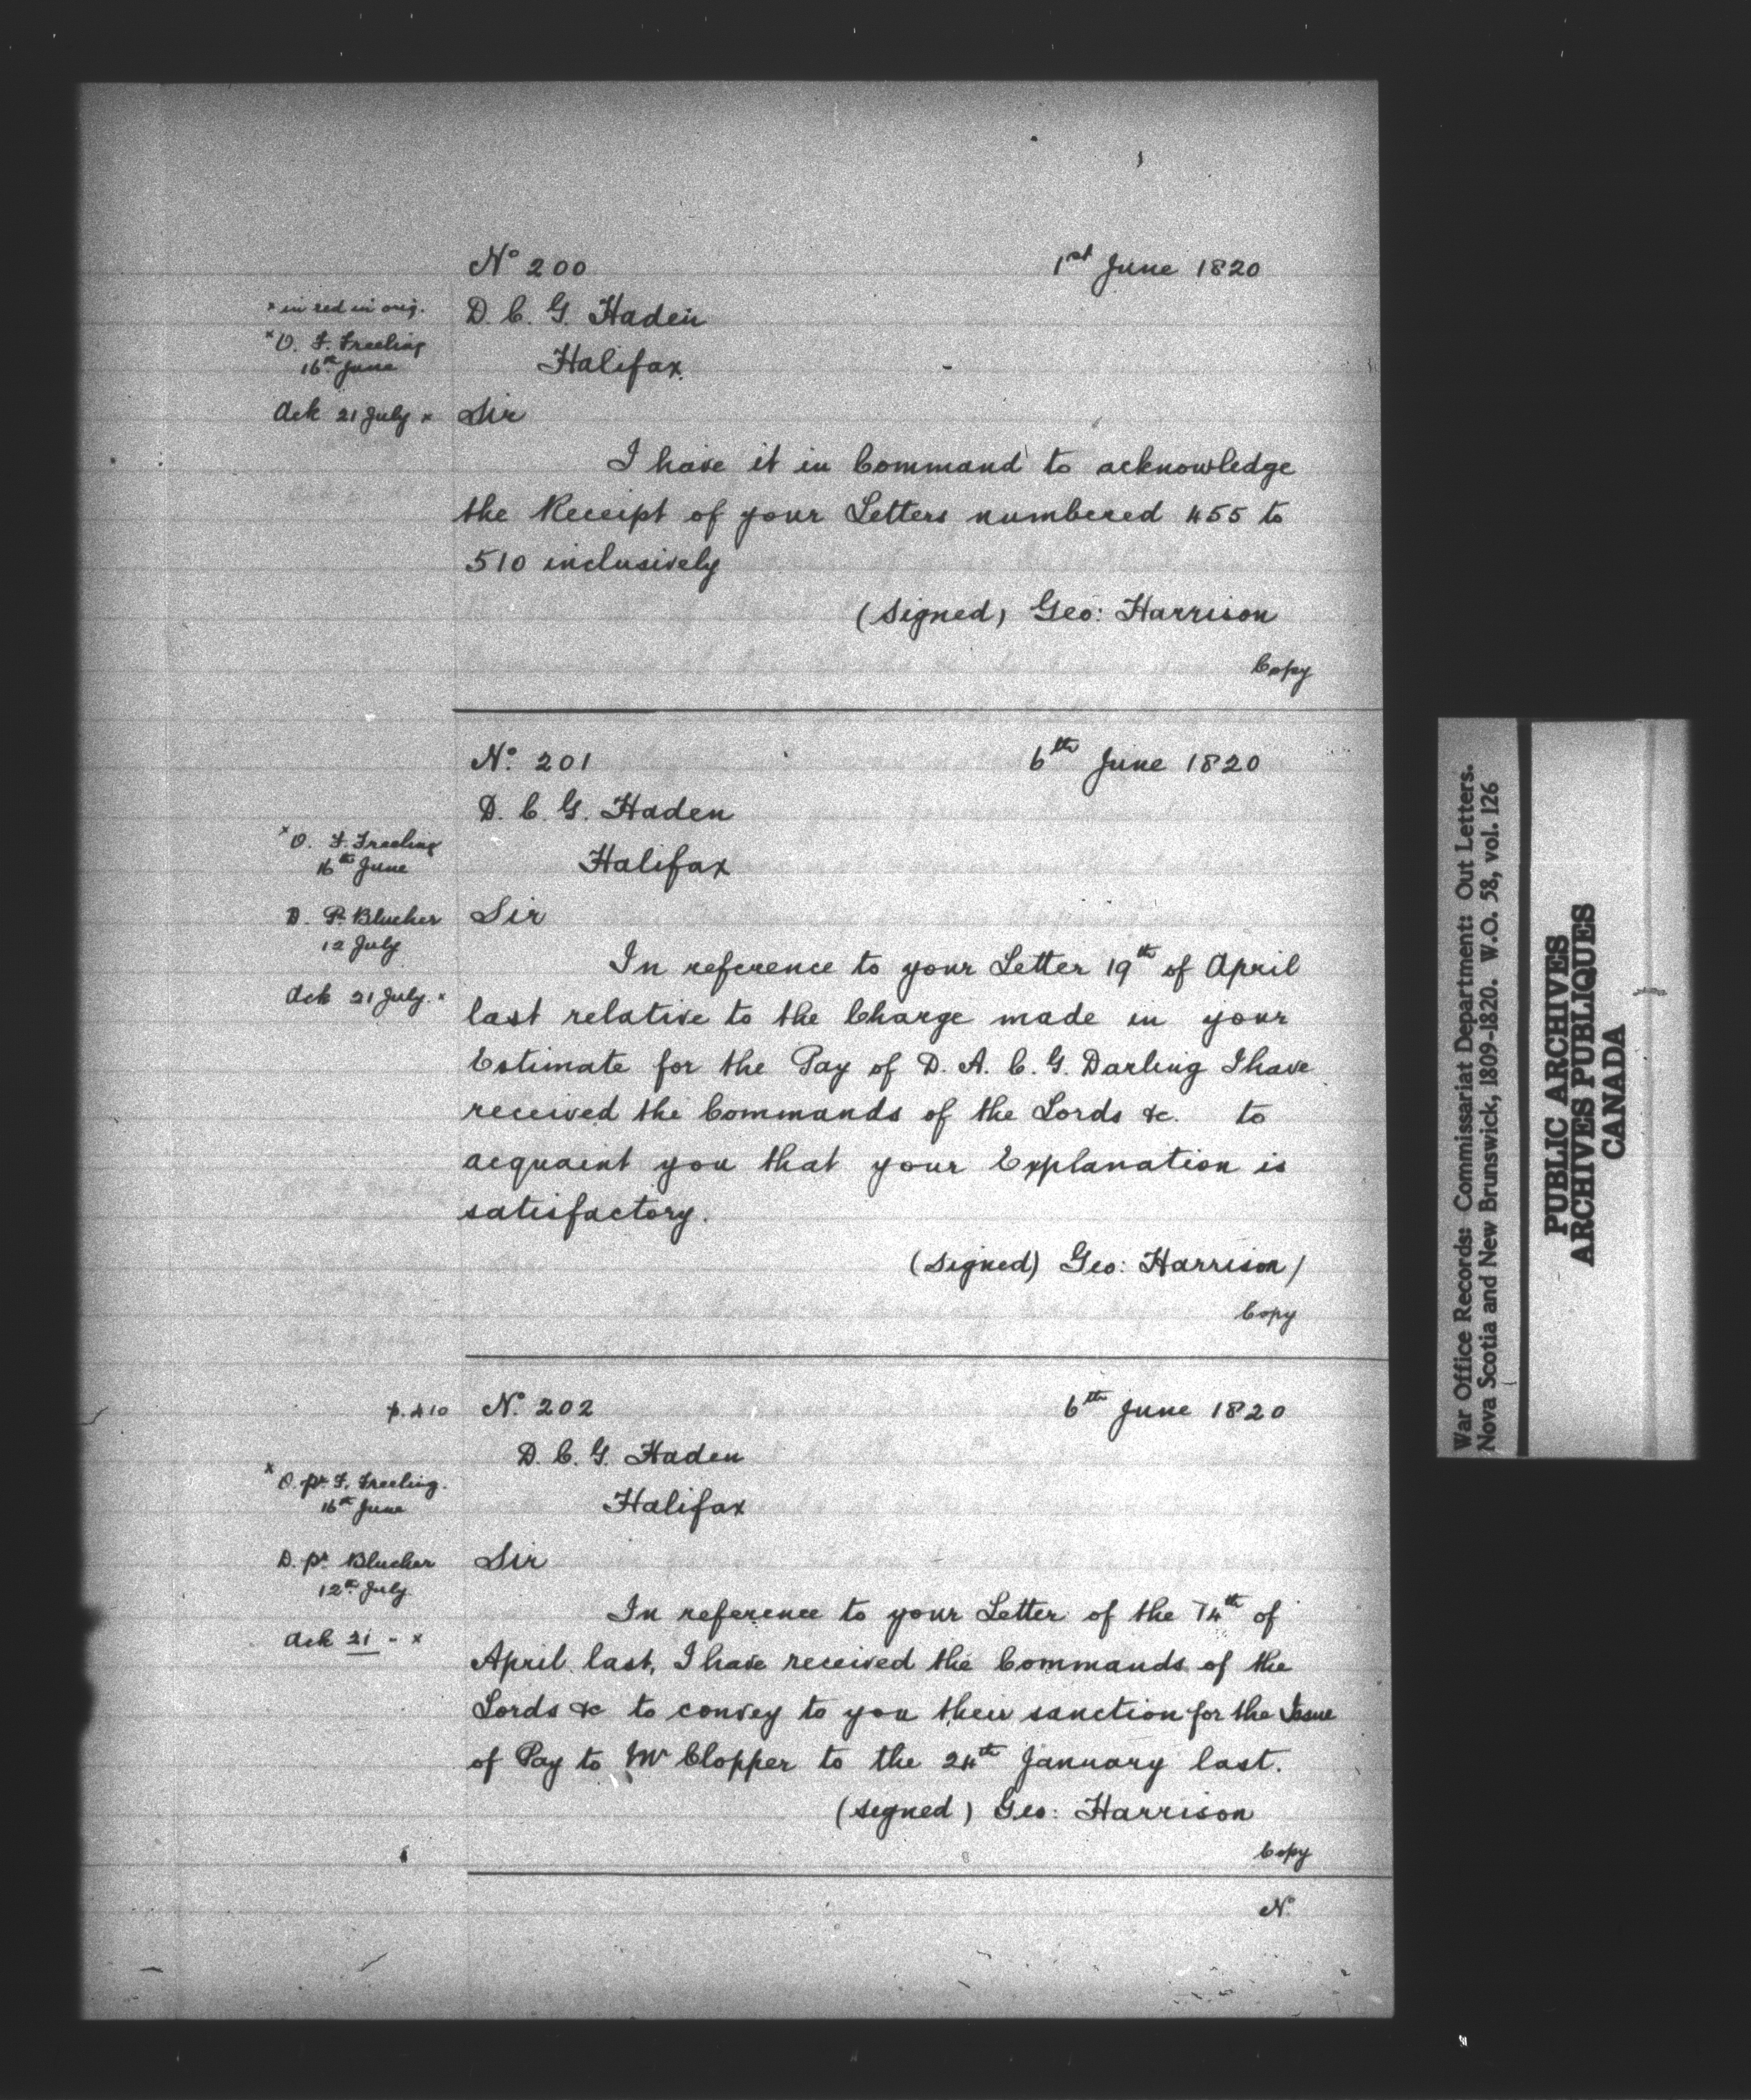 No 200 1st June 1820
* in red in orig.
D. C. G. Haden
* O. F. Freeling
16th June
Halifax.
Ack 21 July x
Sir
I have it in Command to acknowledge
the Receipt of your Letters numbered 455 to
510 inclusively
(signed) Geo: Harrison
Copy
No. 201 6th June 1820
D. C. G. Haden
x O. F. Freeling
16th June
Halifax
D. Pr. Blucher
12 July
Sir
Ack 21 July. x
In reference to your Letter 19th of April
last relative to the Charge made in your
Estimate for the Pay of D. A. C. G. Darling I have
received the Commands of the Lords &c. to
acquaint you that your Explanation is
satisfactory.
(signed) Geo: Harrison /
Copy
p. 410 No. 202 6th June 1820
D. C. G. Haden
x O. pr F. Freeling.
16th June
Halifax
D. pr Blucher
12th July
Sir
Ack 21 - x
In reference to your Letter of the 14th of
April last, I have received the Commands of the
Lords &c to convey to you their sanction for the Issue
of Pay to Mr Clopper to the 24th January last.
(signed) Geo: Harrison
Copy
No.
War Office Records: Commissariat Department: Out Letters.
Nova Scotia and New Brunswick, 1809-1820. W.O. 58, vol. 126
PUBLIC ARCHIVES
ARCHIVES PUBLIQUES
CANADA